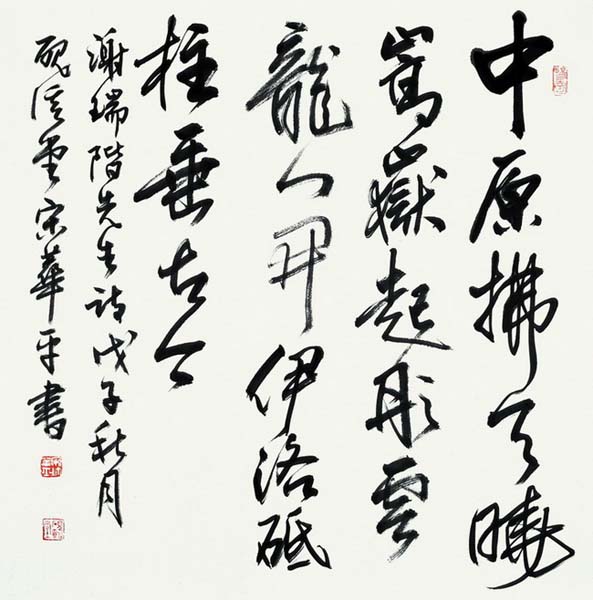 中原拂天曉
嵩嶽起彤雲
龍門開伊洛砥
柱垂古今
謝瑞階先生詩戊子秋月
宋華平書